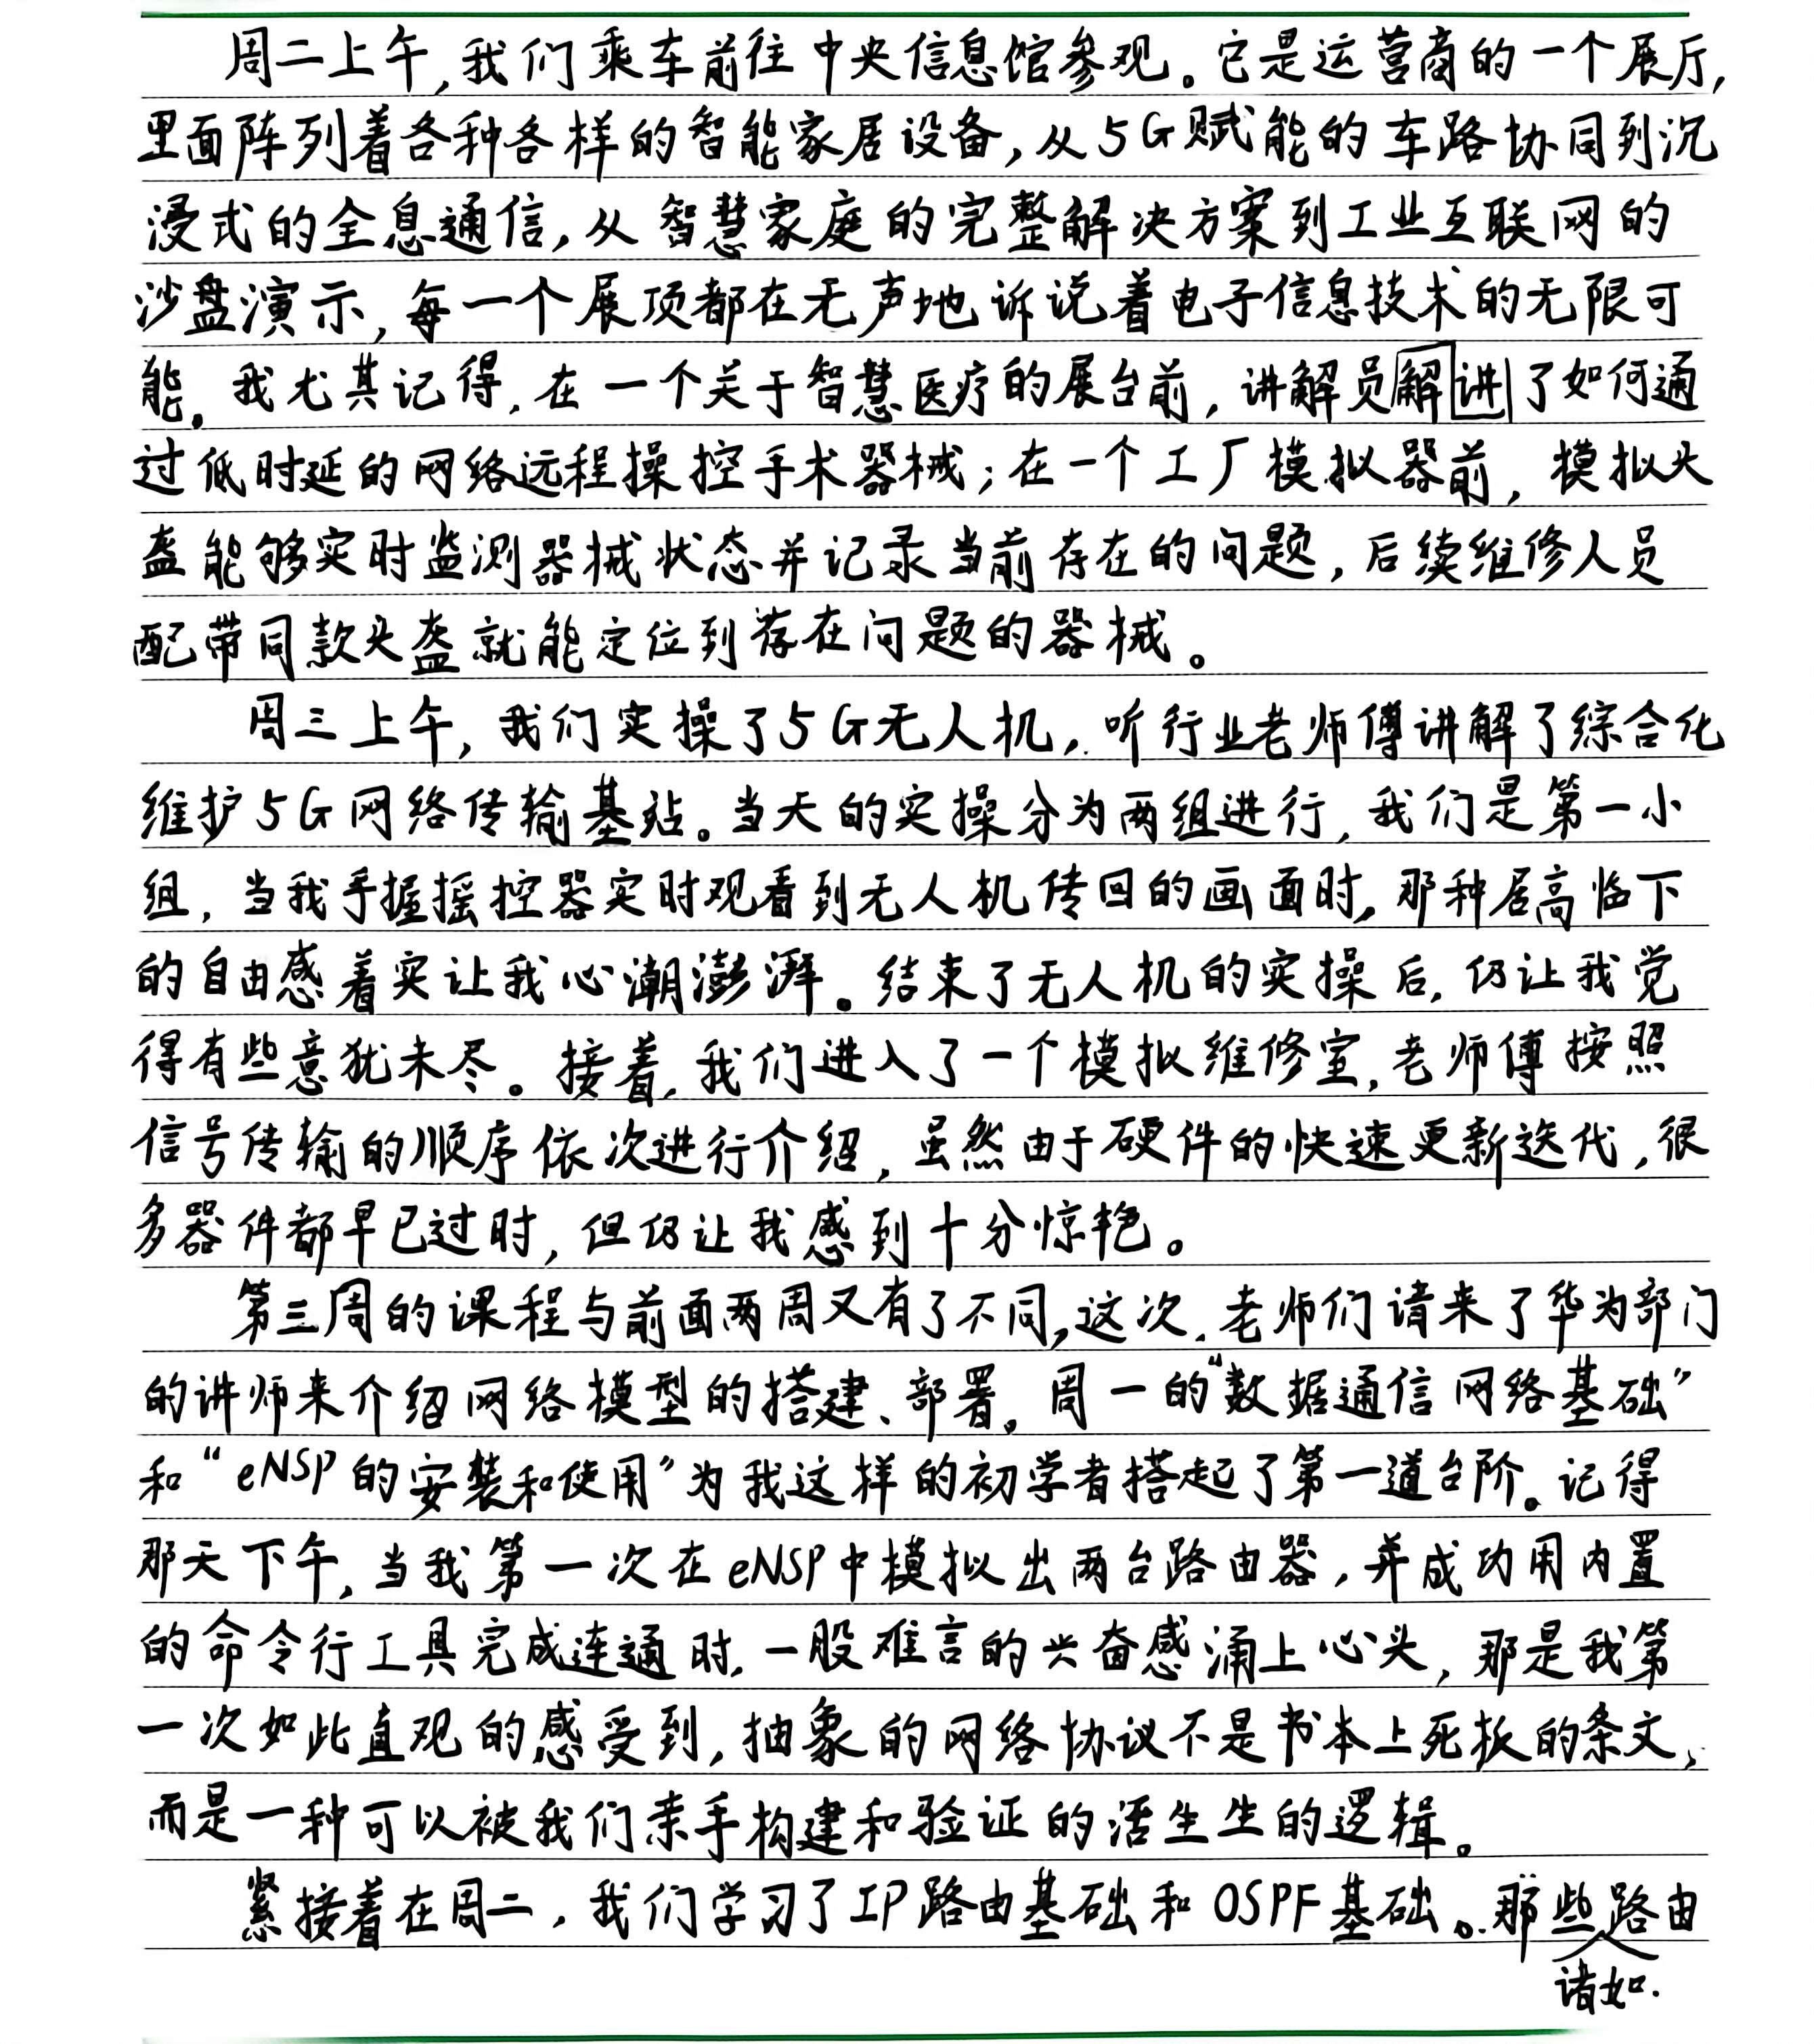 周二上午,我们乘车前往中央信息馆参观。它是运营商的一个展厅,
里面阵列着各种各样的智能家居设备,从5G赋能的车路协同到沉
浸式的全息通信,从智慧家庭的完整解决方案到工业互联网的
沙盘演示,每一个展项都在无声地诉说着电子信息技术的无限可
能。我尤其记得,在一个关于智慧医疗的展台前,讲解员解讲了如何通
过低时延的网络远程操控手术器械;在一个工厂模拟器前,模拟头
盔能够实时监测器械状态并记录当前存在的问题,后续维修人员
配带同款头盔就能定位到存在问题的器械。
周三上午,我们实操了5G无人机,听行业老师傅讲解了综合化
维护5G网络传输基站。当天的实操分为两组进行,我们是第一小
组,当我手握摇控器实时观看到无人机传回的画面时,那种居高临下
的自由感着实让我心潮澎湃。结束了无人机的实操后,仍让我觉
得有些意犹未尽。接着,我们进入了一个模拟维修室,老师傅按照
信号传输的顺序依次进行介绍,虽然由于硬件的快速更新迭代,很
多器件都早已过时,但仍让我感到十分惊艳。
第三周的课程与前面两周又有了不同,这次,老师们请来了华为部门
的讲师来介绍网络模型的搭建、部署。周一的“数据通信网络基础”
和“eNSP的安装和使用”为我这样的初学者搭起了第一道台阶。记得
那天下午,当我第一次在eNSP中模拟出两台路由器,并成功用内置
的命令行工具完成连通时,一股难言的兴奋感涌上心头,那是我第
一次如此直观的感受到,抽象的网络协议不是书本上死板的条文,
而是一种可以被我们亲手构建和验证的活生生的逻辑。
紧接着在周二,我们学习了IP路由基础和OSPF基础。那些路由
诸如